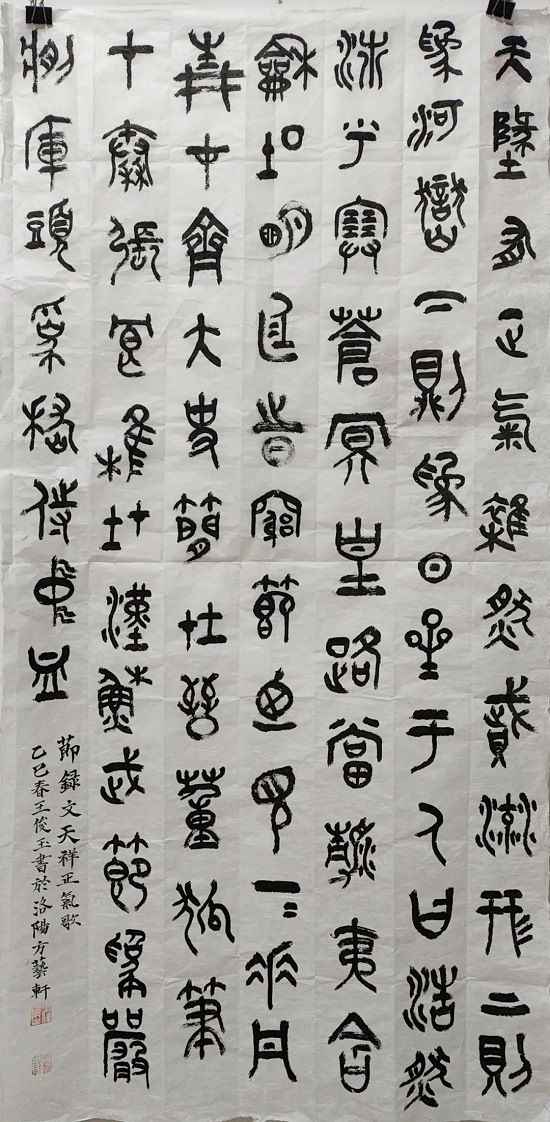 天地有正氣雜然賦流形下則
為河嶽上則為日星于人曰浩然
沛乎塞蒼冥皇路當清夷含
龢吐明廷時窮節乃見一一垂丹
青在齊太史簡在晉董狐筆
在秦張良椎在漢蘇武節為嚴
將軍頭為嵇侍中血
節録文天祥正氣歌
乙巳春王俊玉書於洛陽方藝軒